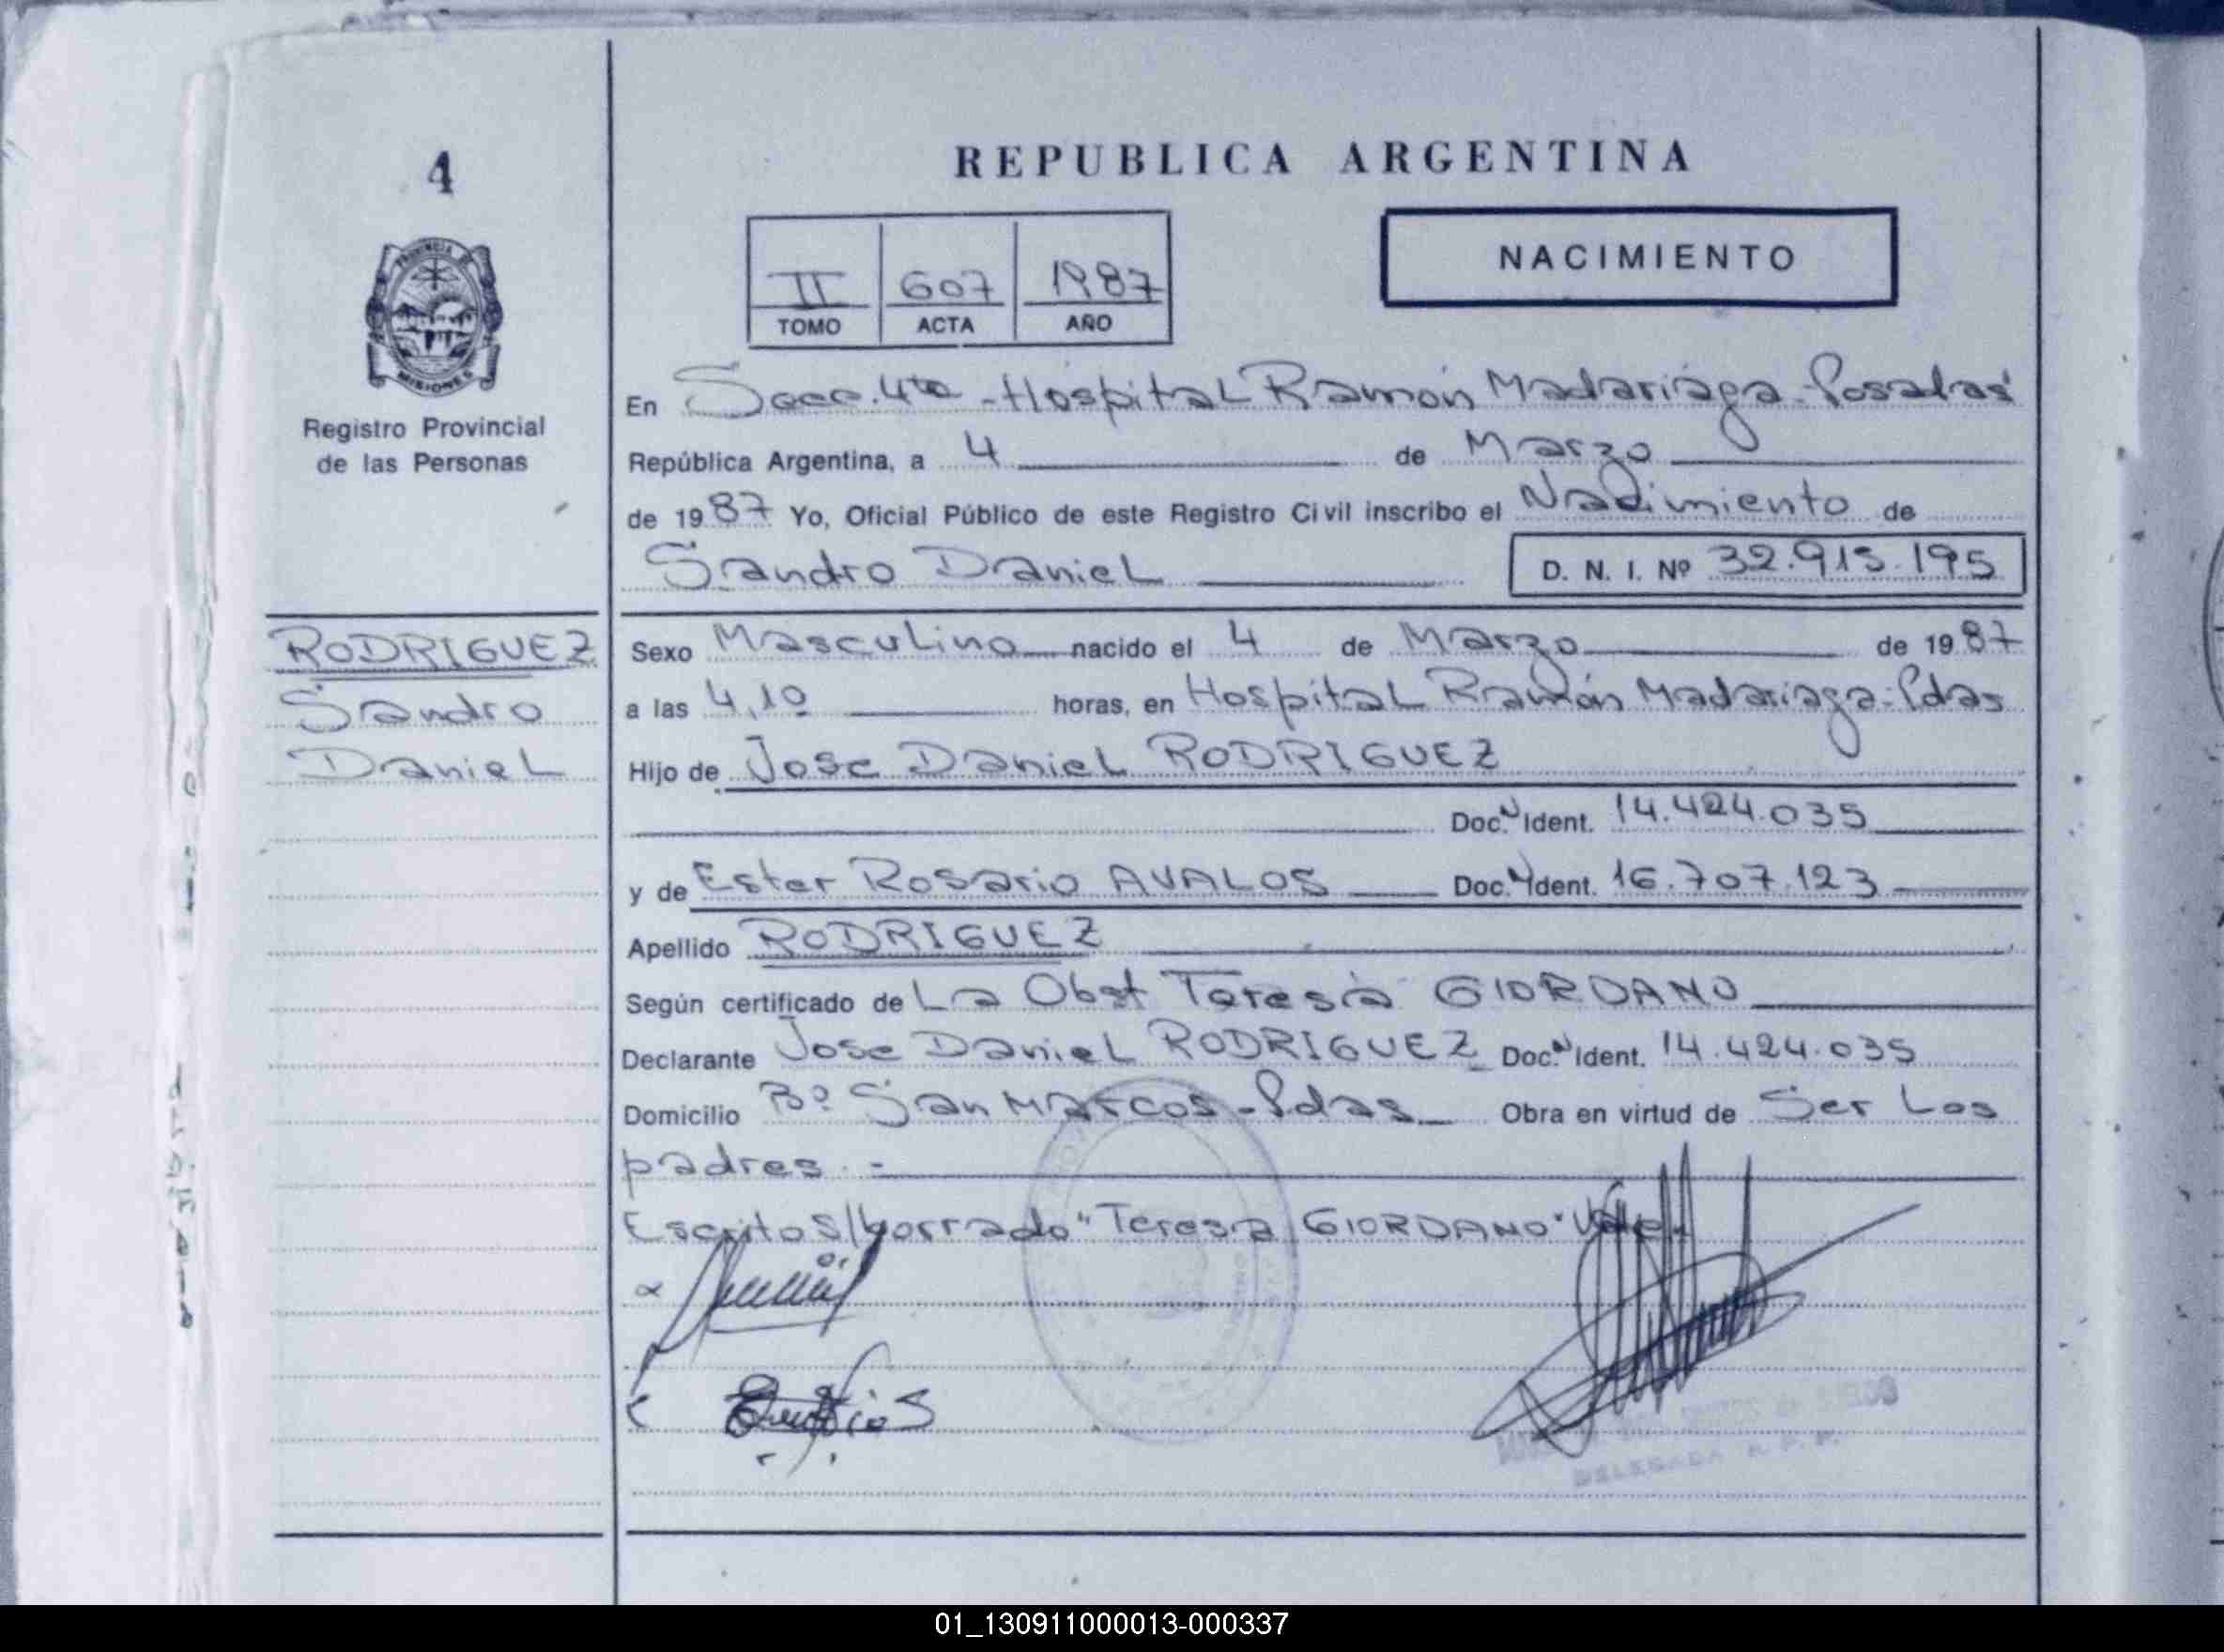 4
PROVINCIA DE
MISIONES
Registro Provincial
de las Personas
RODRIGUEZ
Sandro
Daniel
REPUBLICA ARGENTINA
II 607 1987
TOMO ACTA AÑO
NACIMIENTO
En Secc. 4ta - Hospital Ramón Madariaga - Posadas
República Argentina, a 4 de Marzo
de 1987 Yo, Oficial Público de este Registro Civil inscribo el Nacimiento de
Sandro Daniel D. N. I. Nº 32.915.195
Sexo Masculino nacido el 4 de Marzo de 1987
a las 4,10 horas, en Hospital Ramón Madariaga - Pdas
Hijo de Jose Daniel RODRIGUEZ
Doc. N Ident. 14.424.035
y de Ester Rosario AVALOS Doc. N Ident. 16.707.123
Apellido RODRIGUEZ
Según certificado de La Obst Teresa GIORDANO
Declarante Jose Daniel RODRIGUEZ Doc. N Ident. 14.424.035
Domicilio Bº San Marcos - Pdas Obra en virtud de Ser Los
padres. -
Escrito S/borrado "Teresa GIORDANO" Vale.
DELEGADA R. P. P.
01_130911000013-000337